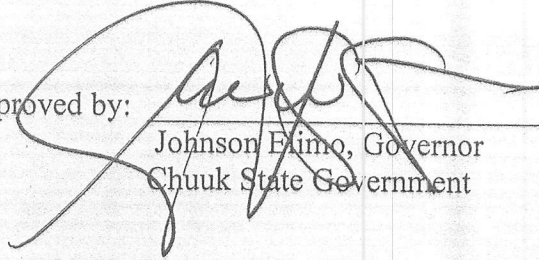 proved by:
Johnson Elimo, Governor
Chuuk State Government